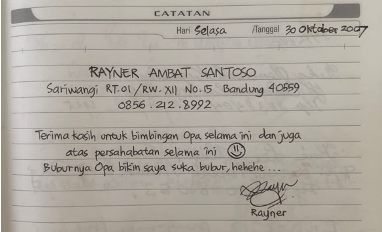 CATATAN
Hari Selasa /Tanggal 30 Oktober 2007
RAYNER AMBAT SANTOSO
Sariwangi RT.01/RW.XII No.15 Bandung 40559
0856.212.8992
Terima kasih untuk bimbingan Opa selama ini dan juga
atas persahabatan selama ini
Buburnya Opa bikin saya suka bubur, hehehe...
Rayner